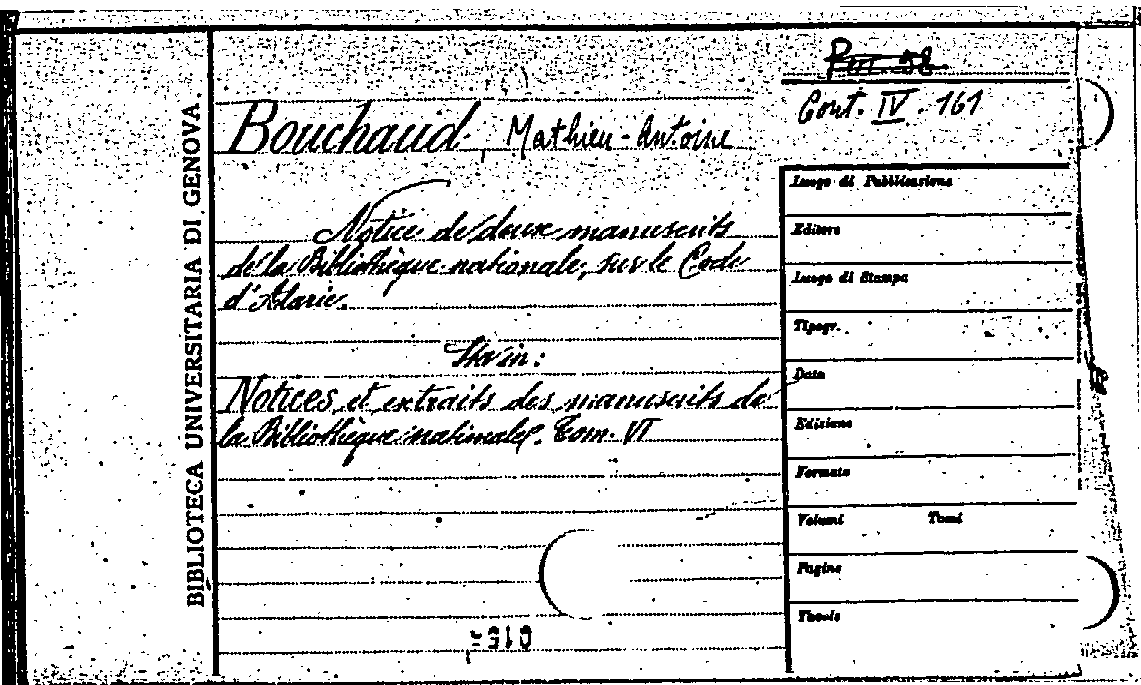 BIBLIOTECA UNIVERSITARIA DI GENOVA.
Cont. IV. 161
Bouchaud, Mathieu-Antoine
Notice de deux manuscrits
de la Bibliothèque nationale, sur le Code
d'Alaric.
Notices et extraits des manuscrits de
la Bibliothèque nationale. Tom. VI
Luogo di Pubblicazione
Editore
Luogo di Stampa
Tipogr.
Data
Edizione
Formato
Volumi Tomi
Pagine
Tavole